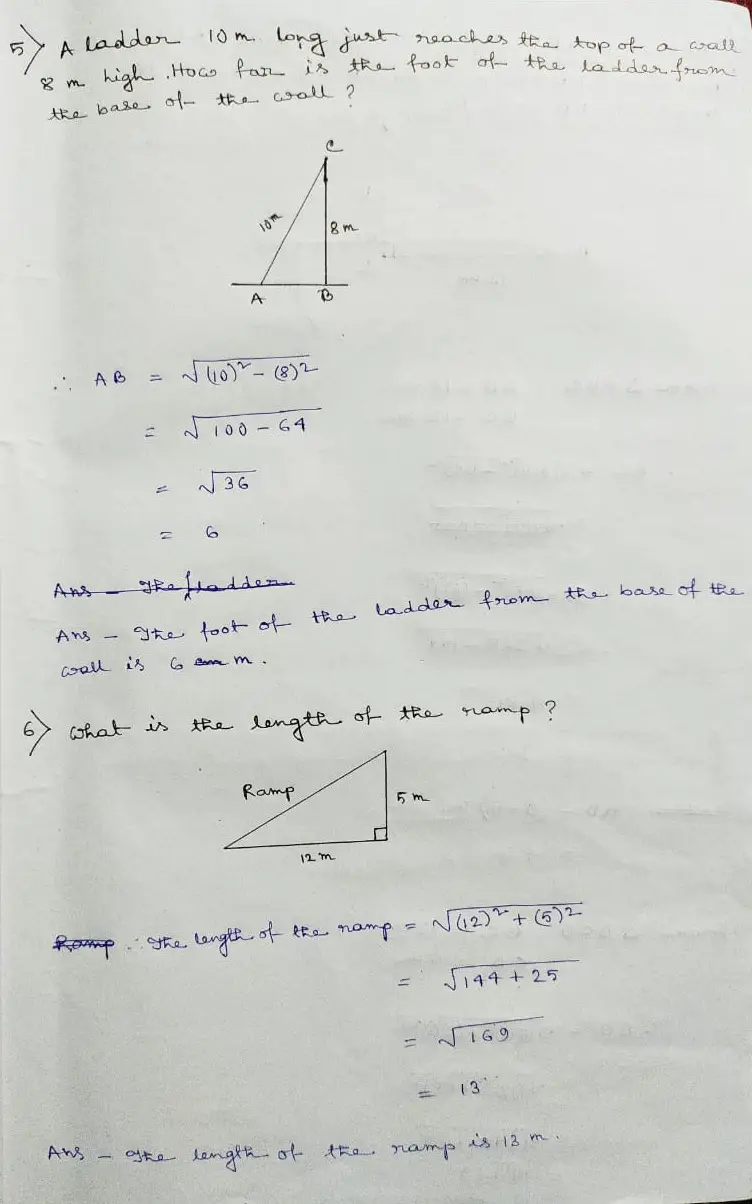 5) A ladder 10 m long just reaches the top of a wall
8 m high. How far is the foot of the ladder from
the base of the wall?
C
10m
8 m
A
B
∴ AB = √(10)² - (8)²
= √100 - 64
= √36
= 6
Ans - The ladder
Ans - The foot of the ladder from the base of the
wall is 6 m.
6) What is the length of the ramp?
Ramp
5 m
12 m
Ramp ∴ The length of the ramp = √(12)² + (5)²
= √144 + 25
= √169
= 13
Ans - The length of the ramp is 13 m.